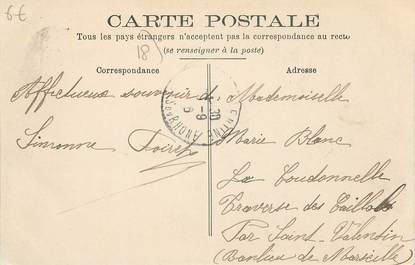 6€
CARTE POSTALE
Tous les pays étrangers n'acceptent pas la correspondance au recto
(se renseigner à la poste)
18
Correspondance
Adresse
Affectueux souvenir de
Simonne
Mademoiselle
Marie Blanc
La Coudonnelle
Traverse des
Par Saint-Valentin
(Banlieue de Marseille)